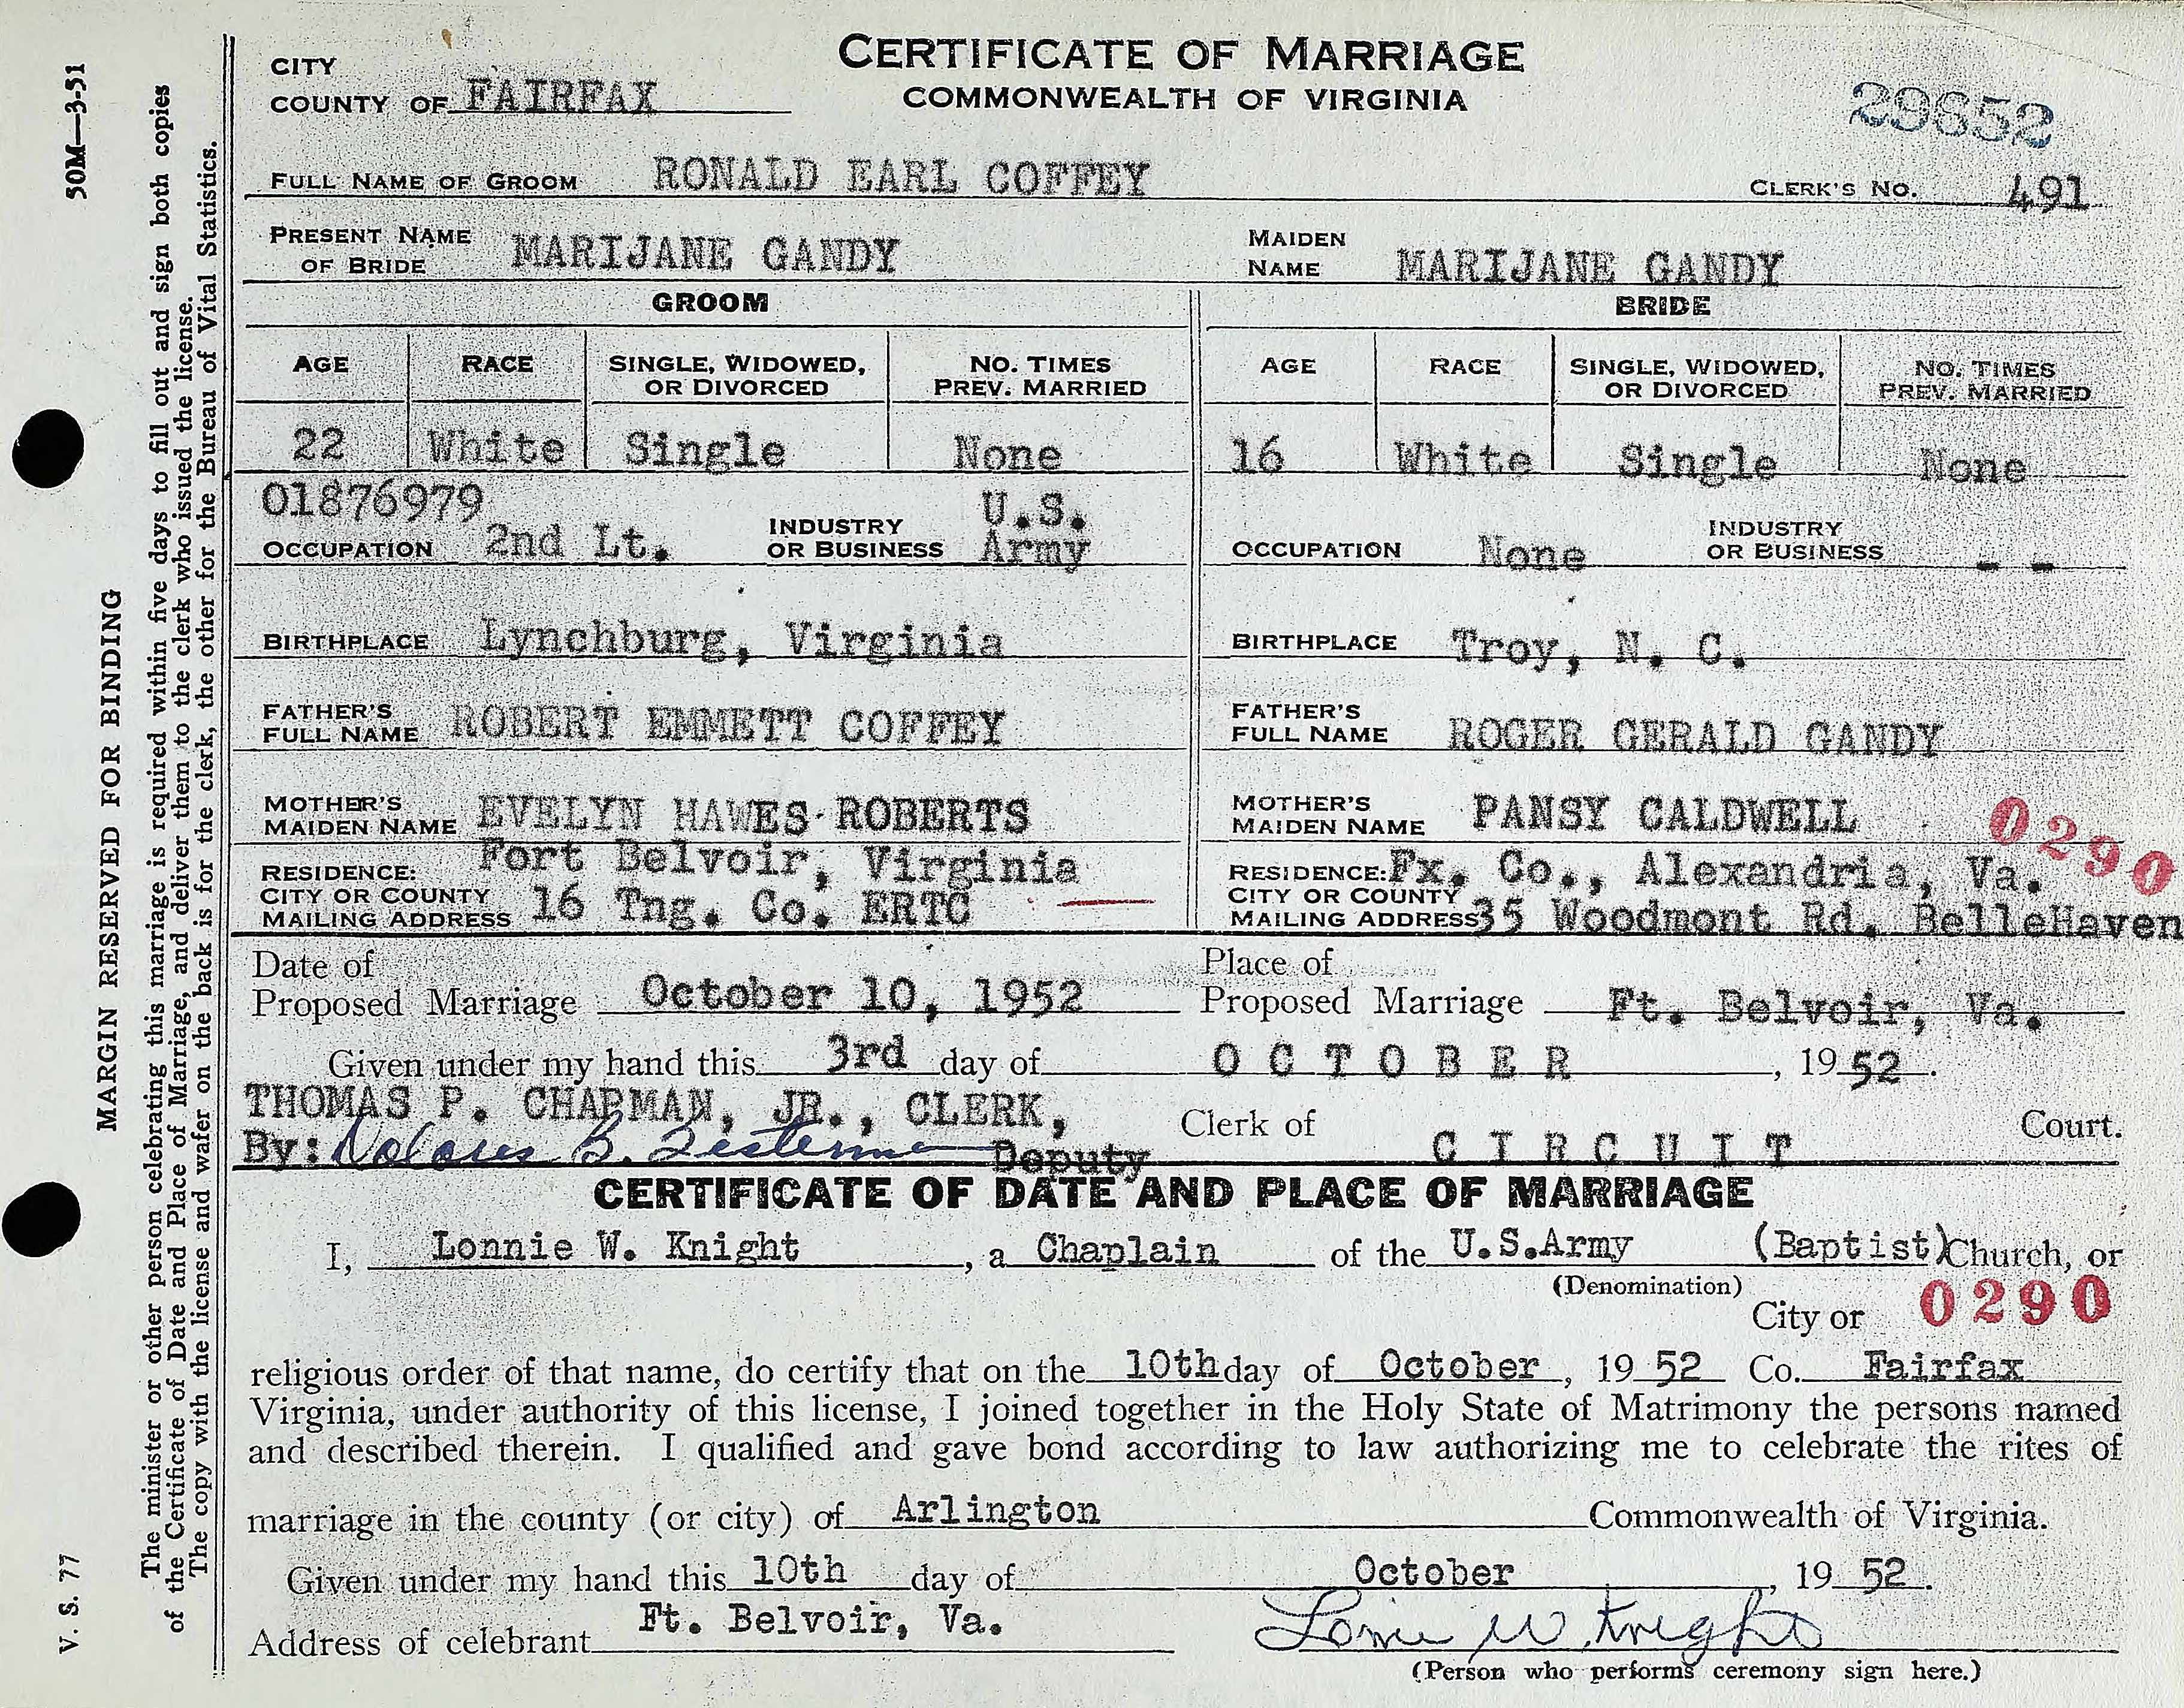 50M—3-51
MARGIN RESERVED FOR BINDING
The minister or other person celebrating this marriage is required within five days to fill out and sign both copies
of the Certificate of Date and Place of Marriage, and deliver them to the clerk who issued the license.
The copy with the license and wafer on the back is for the clerk, the other for the Bureau of Vital Statistics.
V. S. 77
CERTIFICATE OF MARRIAGE
COMMONWEALTH OF VIRGINIA
CITY
COUNTY OF FAIRFAX
29652
FULL NAME OF GROOM RONALD EARL COFFEY CLERK'S NO. 491
PRESENT NAME OF BRIDE MARIJANE GANDY MAIDEN NAME MARIJANE GANDY
GROOM
AGE RACE SINGLE, WIDOWED, OR DIVORCED NO. TIMES PREV. MARRIED
22 White Single None
01876979
OCCUPATION 2nd Lt. INDUSTRY OR BUSINESS U.S. Army
BIRTHPLACE Lynchburg, Virginia
FATHER'S FULL NAME ROBERT EMMETT COFFEY
MOTHER'S MAIDEN NAME EVELYN HAWES ROBERTS
RESIDENCE: Fort Belvoir, Virginia
CITY OR COUNTY
MAILING ADDRESS 16 Tng. Co. ERTC
BRIDE
AGE RACE SINGLE, WIDOWED, OR DIVORCED NO. TIMES PREV. MARRIED
16 White Single None
OCCUPATION None INDUSTRY OR BUSINESS - -
BIRTHPLACE Troy, N. C.
FATHER'S FULL NAME ROGER GERALD GANDY
MOTHER'S MAIDEN NAME PANSY CALDWELL
0290
RESIDENCE: Fx. Co., Alexandria, Va.
CITY OR COUNTY
MAILING ADDRESS 35 Woodmont Rd. BelleHaven
Date of
Proposed Marriage October 10, 1952
Place of
Proposed Marriage Ft. Belvoir, Va.
Given under my hand this 3rd day of OCTOBER, 1952.
THOMAS P. CHAPMAN, JR., CLERK, Clerk of CIRCUIT Court.
By: Dolores B. Testerman Deputy
CERTIFICATE OF DATE AND PLACE OF MARRIAGE
I, Lonnie W. Knight, a Chaplain of the U.S.Army (Baptist) Church, or
(Denomination)
City or 0290
religious order of that name, do certify that on the 10th day of October, 1952 Co. Fairfax
Virginia, under authority of this license, I joined together in the Holy State of Matrimony the persons named
and described therein. I qualified and gave bond according to law authorizing me to celebrate the rites of
marriage in the county (or city) of Arlington Commonwealth of Virginia.
Given under my hand this 10th day of October, 1952.
Address of celebrant Ft. Belvoir, Va. Lonnie W. Knight
(Person who performs ceremony sign here.)